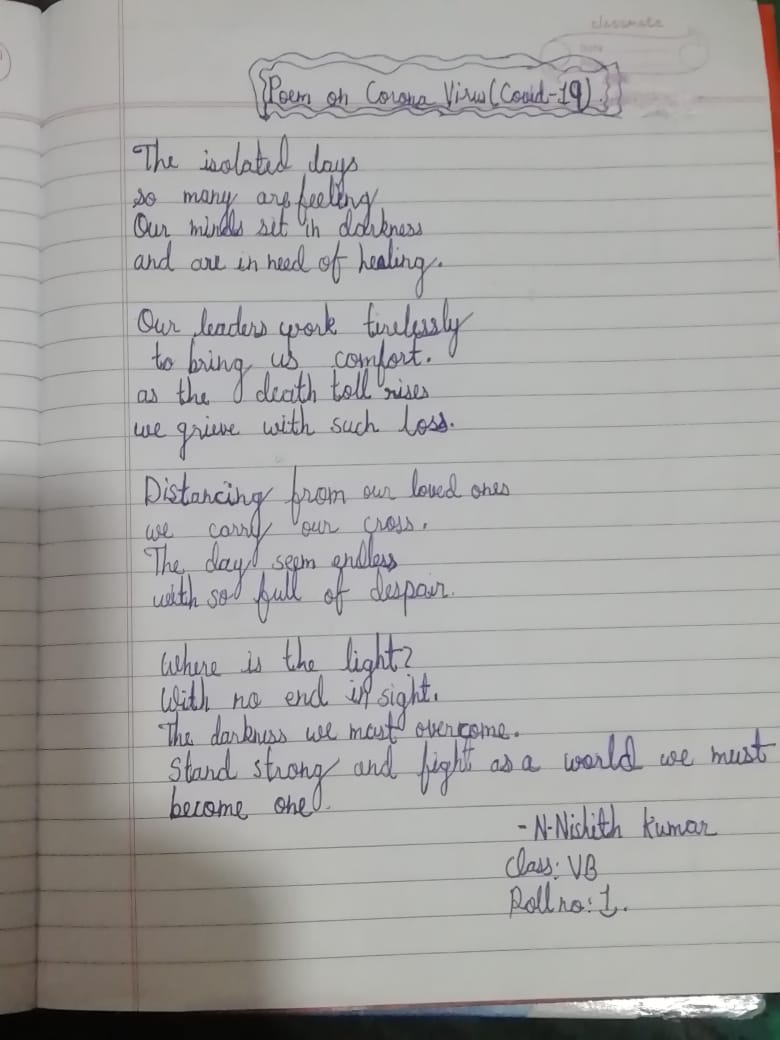 classmate
Poem on Corona Virus (Covid-19).
The isolated days
so many are feeling
Our minds sit in darkness
and are in need of healing.
Our leaders work tirelessly
to bring us comfort.
as the death toll rises
we grieve with such loss.
Distancing from our loved ones
we carry our cross.
The day seem endless
with so full of despair.
Where is the light?
With no end in sight.
The darkness we must overcome.
Stand strong and fight as a world we must
become one.
- N-Nishith Kumar
Class: VB
Roll no: 1.